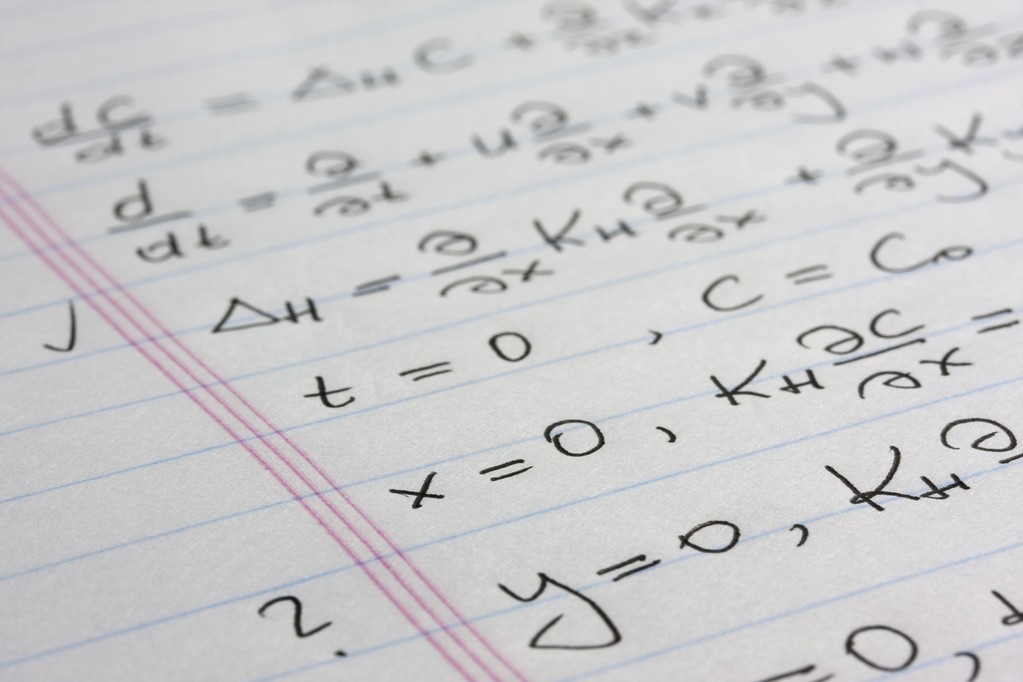 dC/dt = ΔH C + ∂/∂x K
d/dt = ∂/∂t + u ∂/∂x + v ∂/∂y + w ∂/∂
✓ ΔH = ∂/∂x KH ∂/∂x + ∂/∂y K
t = 0 , C = C0
x = 0 , KH ∂C/∂x =
? y = 0 , KH ∂
= 0 ,